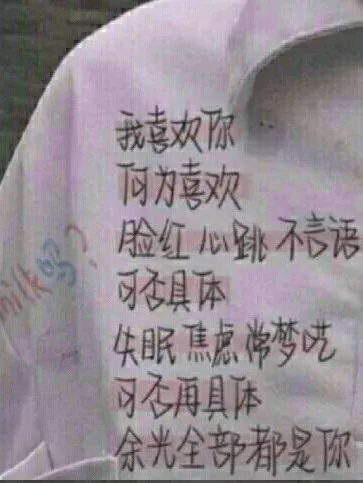 我喜欢你
何为喜欢
脸红心跳不言语
可否具体
失眠焦虑常梦呓
可否再具体
余光全部都是你
milk吗?